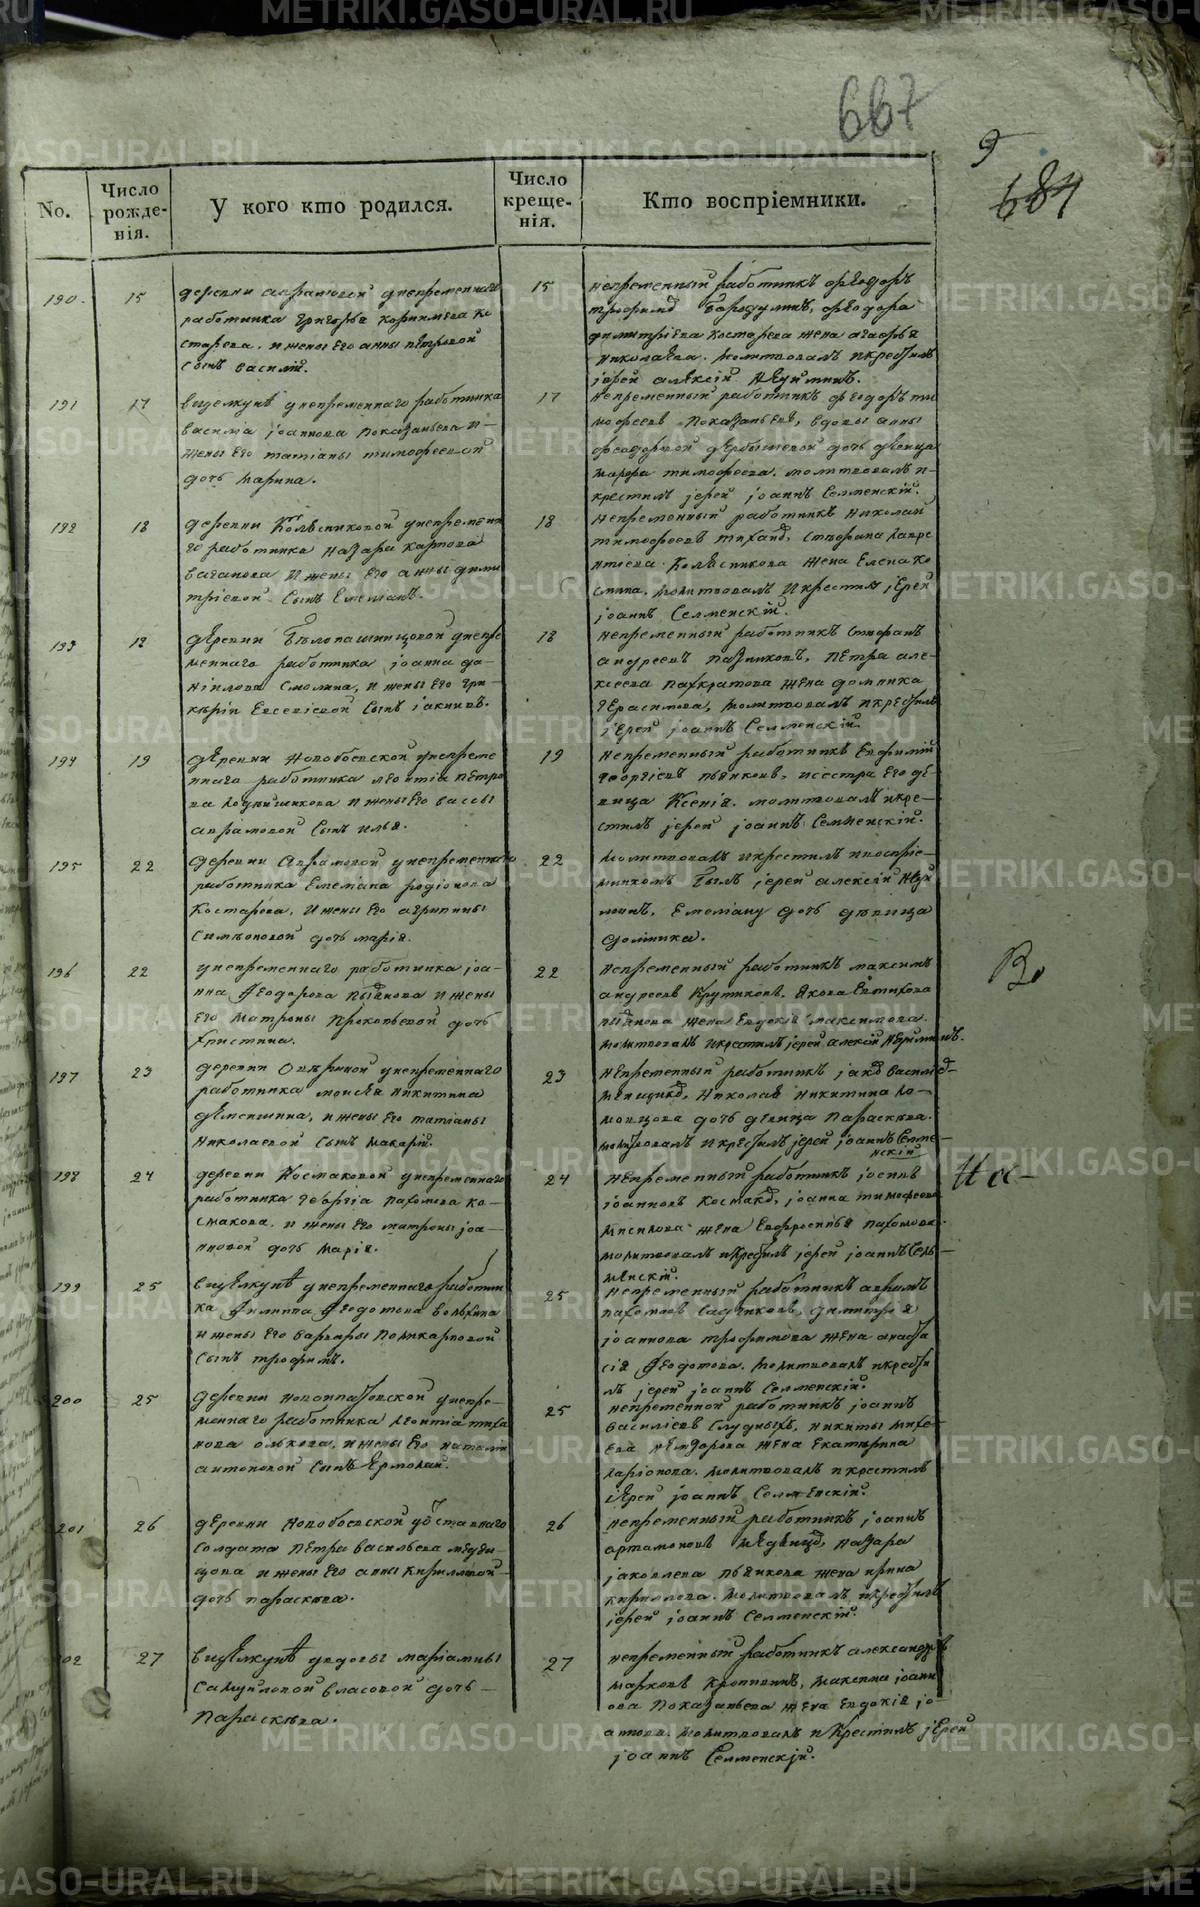 667
9
684
No.
Число рожде-нія.
У кого кто родился.
Число креще-нія.
Кто воспріемники.
190.
15
деревни аврамовой унепременнаго
работника григорья
старева, и жены его анны петровой
сынъ василій.
15
непременный работникъ феодоръ
трофимовъ Бородулинъ, феодора
димитріева костарева жена агафья
николаева. молитвовалъ икрестилъ
іерей алексій
191
17
вщелкунѣ унепременнаго работника
василіа іоаннова Показаньева и
жены его татіаны тимофеевой
дочь марина.
17
непременный работникъ феодоръ ти
мофеевъ Показаньевъ, вдовы анны
феодоровой дочь девица
тимофеева. молитвовалъ и
крестилъ іерей іоаннъ Селменскій.
192
18
деревни Колѣсниковой унепременна
го работника назара карпова
ваганова и жены его анны дими
тріевой сынъ Емеліанъ.
18
непременный работникъ николай
тимофеевъ стефана лавре
нтіева Колѣсникова жена Елена ко
смина. молитвовалъ и крестилъ іерей
іоаннъ Селменскій.
193
18
деревни Бѣлопашинцовой унепре
меннаго работника іоанна да-
ніилова Смолина, и жены его гли-
керіи Евсевіевой сынъ іакинфъ.
18
непременный работникъ стефанъ
андреевъ пазниковъ, петра але-
ксеева панкратова жена домника
герасимова, молитвовалъ икрестилъ
іерей іоаннъ Селменскій.
194
19
деревни новобоевской унепреме
ннаго работника леонтіа петро
ва и жены его вассы
аврамовой сынъ илья.
19
непременный работникъ Евфимій
георгіевъ пьянковъ, исестра его де
вица Ксенія. молитвовалъ икре-
стилъ іерей іоаннъ Селменскій.
195
22
деревни аврамовой унепременнаго
работника Емеліана родіонова
Костарева, и жены его агрипины
Симеоновой дочь марія.
22
молитвовалъ икрестилъ ивоспріе-
мникомъ былъ іерей алексій
Емеліану дочь девица
домника.
196
22
унепременнаго работника іоа-
нна Феодорова пьянкова и жены
его матроны Прокопьевой дочь
христина.
22
непременный работникъ максимъ
андреевъ Крутиковъ, якова Евтихова
пьянкова жена Евдокія максимова.
молитвовалъ икрестилъ іерей алексій
В.
197
23
деревни унепременнаго
работника моисея никитина
деменшина, и жены его татіаны
николаевой сынъ макарій.
23
непременный работникъ василіевъ
николая никитина ло-
мовцова дочь девица Параскева.
молитвовалъ и крестилъ іерей іоаннъ Селме-
нскій
198
24
деревни Космаковой унепременнаго
работника георгіа пахомова ко-
смакова, и жены его матроны іоа-
нновой дочь марія.
24
непременный работникъ іосифъ
іоанновъ Космаковъ, іоанна тимофеева
жена Евфросинья пахомова.
молитвовалъ икрестилъ іерей іоаннъ Сел-
менскій.
199
25
вщелкунѣ унепременнаго работни
ка Филиппа Феодотова
и жены его варвары Поликарповой
сынъ трофимъ.
25
непременный работникъ аврамъ
пахомовъ Садчиковъ, димитрія
іоаннова трофимова жена анаста
сія Феодотова. молитвовалъ икрести
лъ іерей іоаннъ Селменскій.
200
25
деревни новоипатовской унепре-
меннаго работника леонтіа тихо
нова и жены его наталіи
антоновой сынъ Ермолай.
25
непременной работникъ іоаннъ
василіевъ никиты михе-
ева жена Екатерина
ларіонова. молитвовалъ и крестилъ
іерей іоаннъ Селменскій.
201
26
деревни новобоевской уотставнаго
солдата Петра васильева медви-
цова и жены его анны кириловой
дочь параскева.
26
непременный работникъ іоаннъ
артамоновъ назара
іаковлева пьянкова жена ирина
кирилова. молитвовалъ икрестилъ
іерей іоаннъ Селменскій.
202
27
вщелкунѣ увдовы маріамны
Самуиловой власовой дочь
Параскева.
27
непременный работникъ александръ
марковъ максима іоанн
ова Показаньева жена Евдокія іо
аннова. молитвовалъ и крестилъ іерей
іоаннъ Селменскій.
METRIKI.GASO-URAL.RU